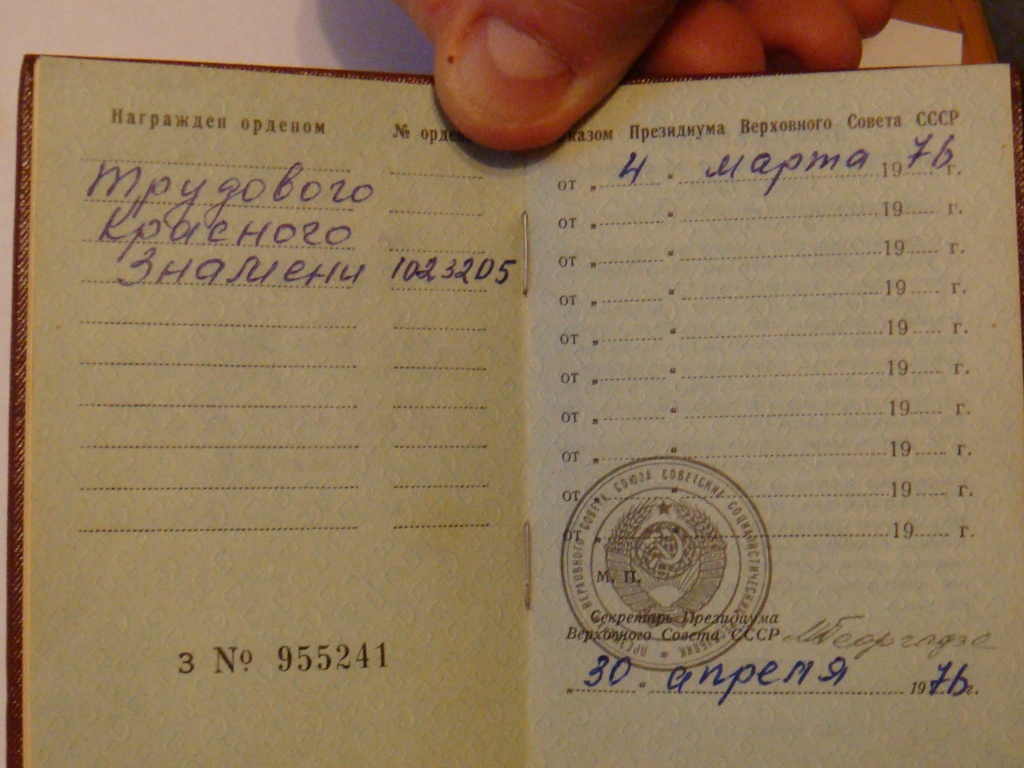 Награжден орденом
№ орден
Трудового
Красного
Знамени 1023205
З № 955241
казом Президиума Верховного Совета СССР
от „ 4 “ марта 1976 г.
от „ “ 19 г.
от „ “ 19 г.
от „ “ 19 г.
от „ “ 19 г.
от „ “ 19 г.
от „ “ 19 г.
от „ “ 19 г.
от „ “ 19 г.
от „ “ 19 г.
ВЕРХОВНОГО СОВЕТА СОЮЗА СОВЕТСКИХ СОЦИАЛИСТИЧЕСКИХ
М. П.
Секретарь Президиума
Верховного Совета СССР М Георгадзе
„ 30 “ апреля 1976 г.